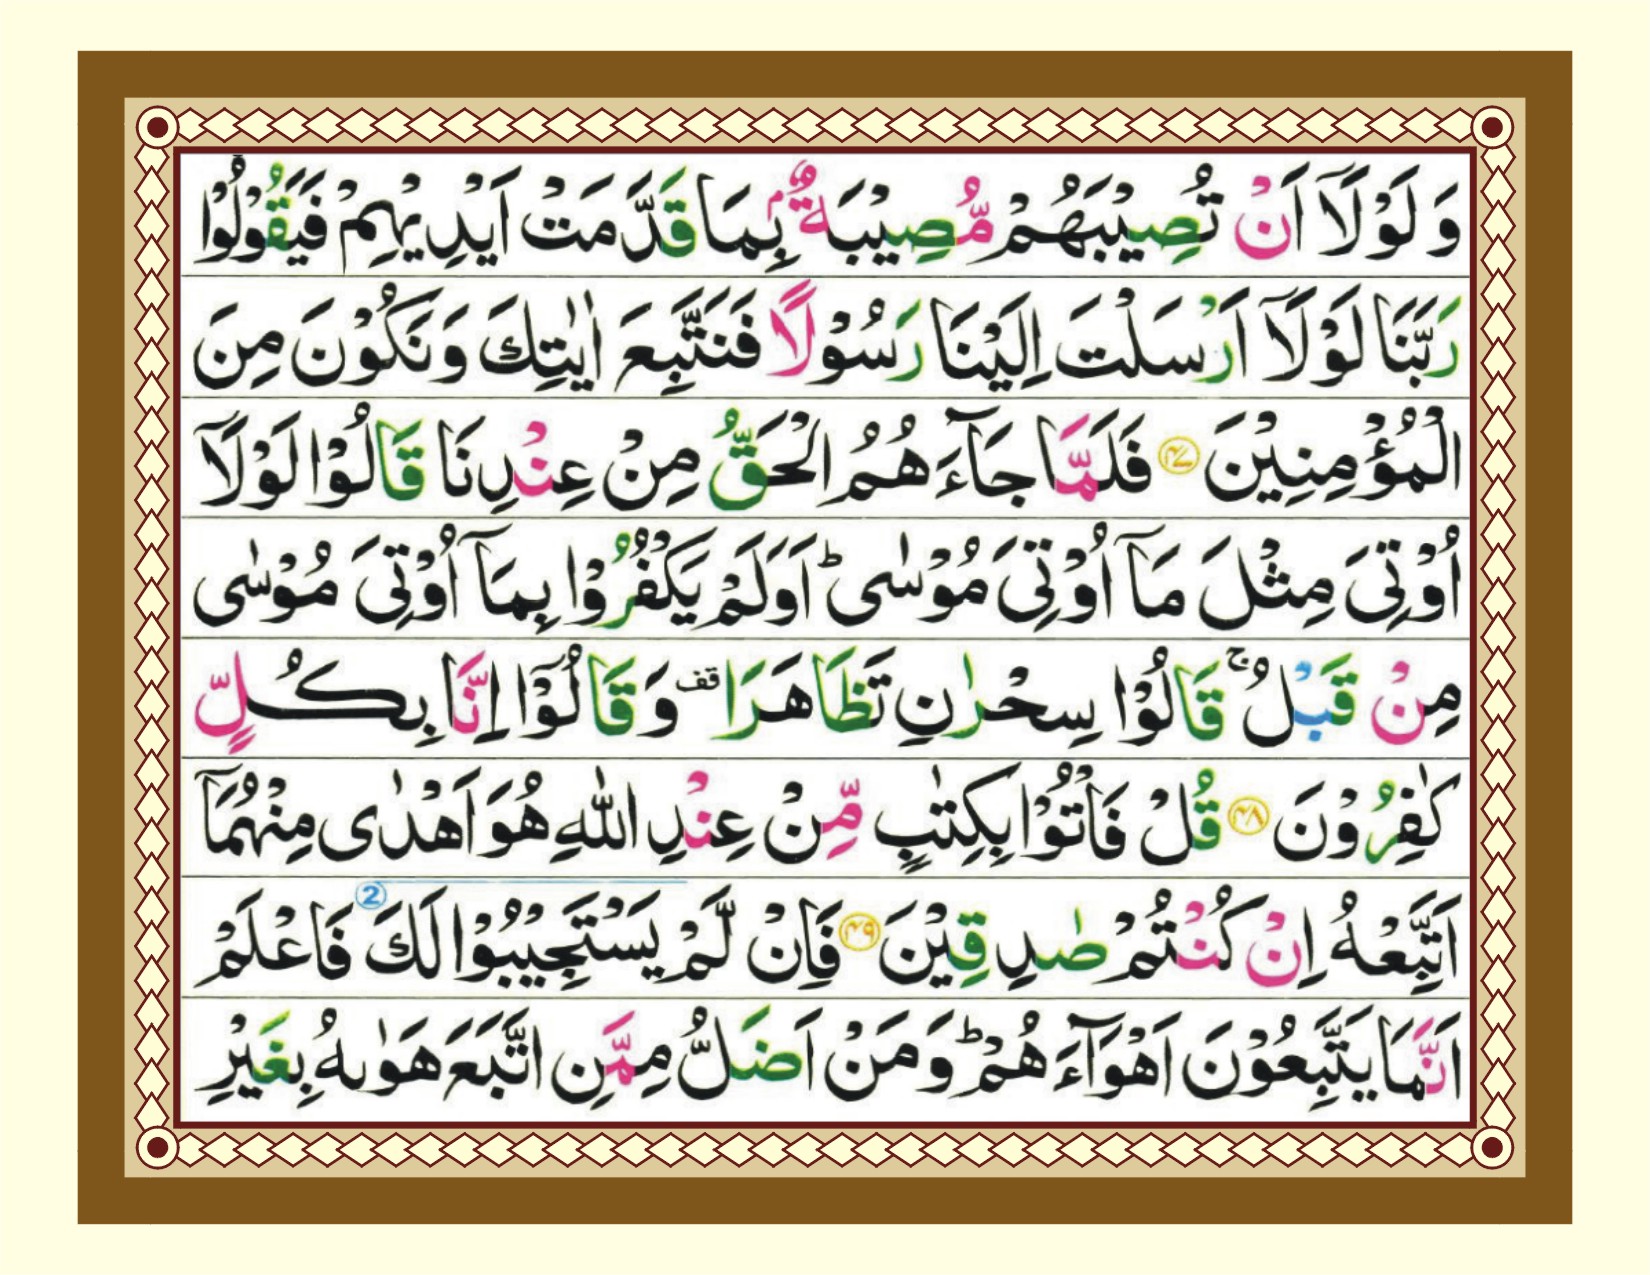 وَلَوْلَاۤ اَنْ تُصِيْبَهُمْ مُّصِيْبَةٌۢ بِمَا قَدَّمَتْ اَيْدِيْهِمْ فَيَقُوْلُوْا
رَبَّنَا لَوْلَاۤ اَرْسَلْتَ اِلَيْنَا رَسُوْلًا فَنَتَّبِعَ اٰيٰتِكَ وَنَكُوْنَ مِنَ
الْمُؤْمِنِيْنَ ﴿۴۷﴾ فَلَمَّا جَآءَهُمُ الْحَقُّ مِنْ عِنْدِنَا قَالُوْا لَوْلَاۤ
اُوْتِيَ مِثْلَ مَاۤ اُوْتِيَ مُوْسٰى ؕ اَوَلَمْ يَكْفُرُوْا بِمَاۤ اُوْتِيَ مُوْسٰى
مِنْ قَبْلُ ۚ قَالُوْا سِحْرٰنِ تَظَاهَرَا قف وَقَالُوْۤا اِنَّا بِكُلٍّ
كٰفِرُوْنَ ﴿۴۸﴾ قُلْ فَاْتُوْا بِكِتٰبٍ مِّنْ عِنْدِ اللّٰهِ هُوَ اَهْدٰى مِنْهُمَاۤ
اَتَّبِعْهُ اِنْ كُنْتُمْ صٰدِقِيْنَ ﴿۴۹﴾ فَاِنْ لَّمْ يَسْتَجِيْبُوْا لَكَ 2 فَاعْلَمْ
اَنَّمَا يَتَّبِعُوْنَ اَهْوَآءَهُمْ ؕ وَمَنْ اَضَلُّ مِمَّنِ اتَّبَعَ هَوٰىهُ بِغَيْرِ